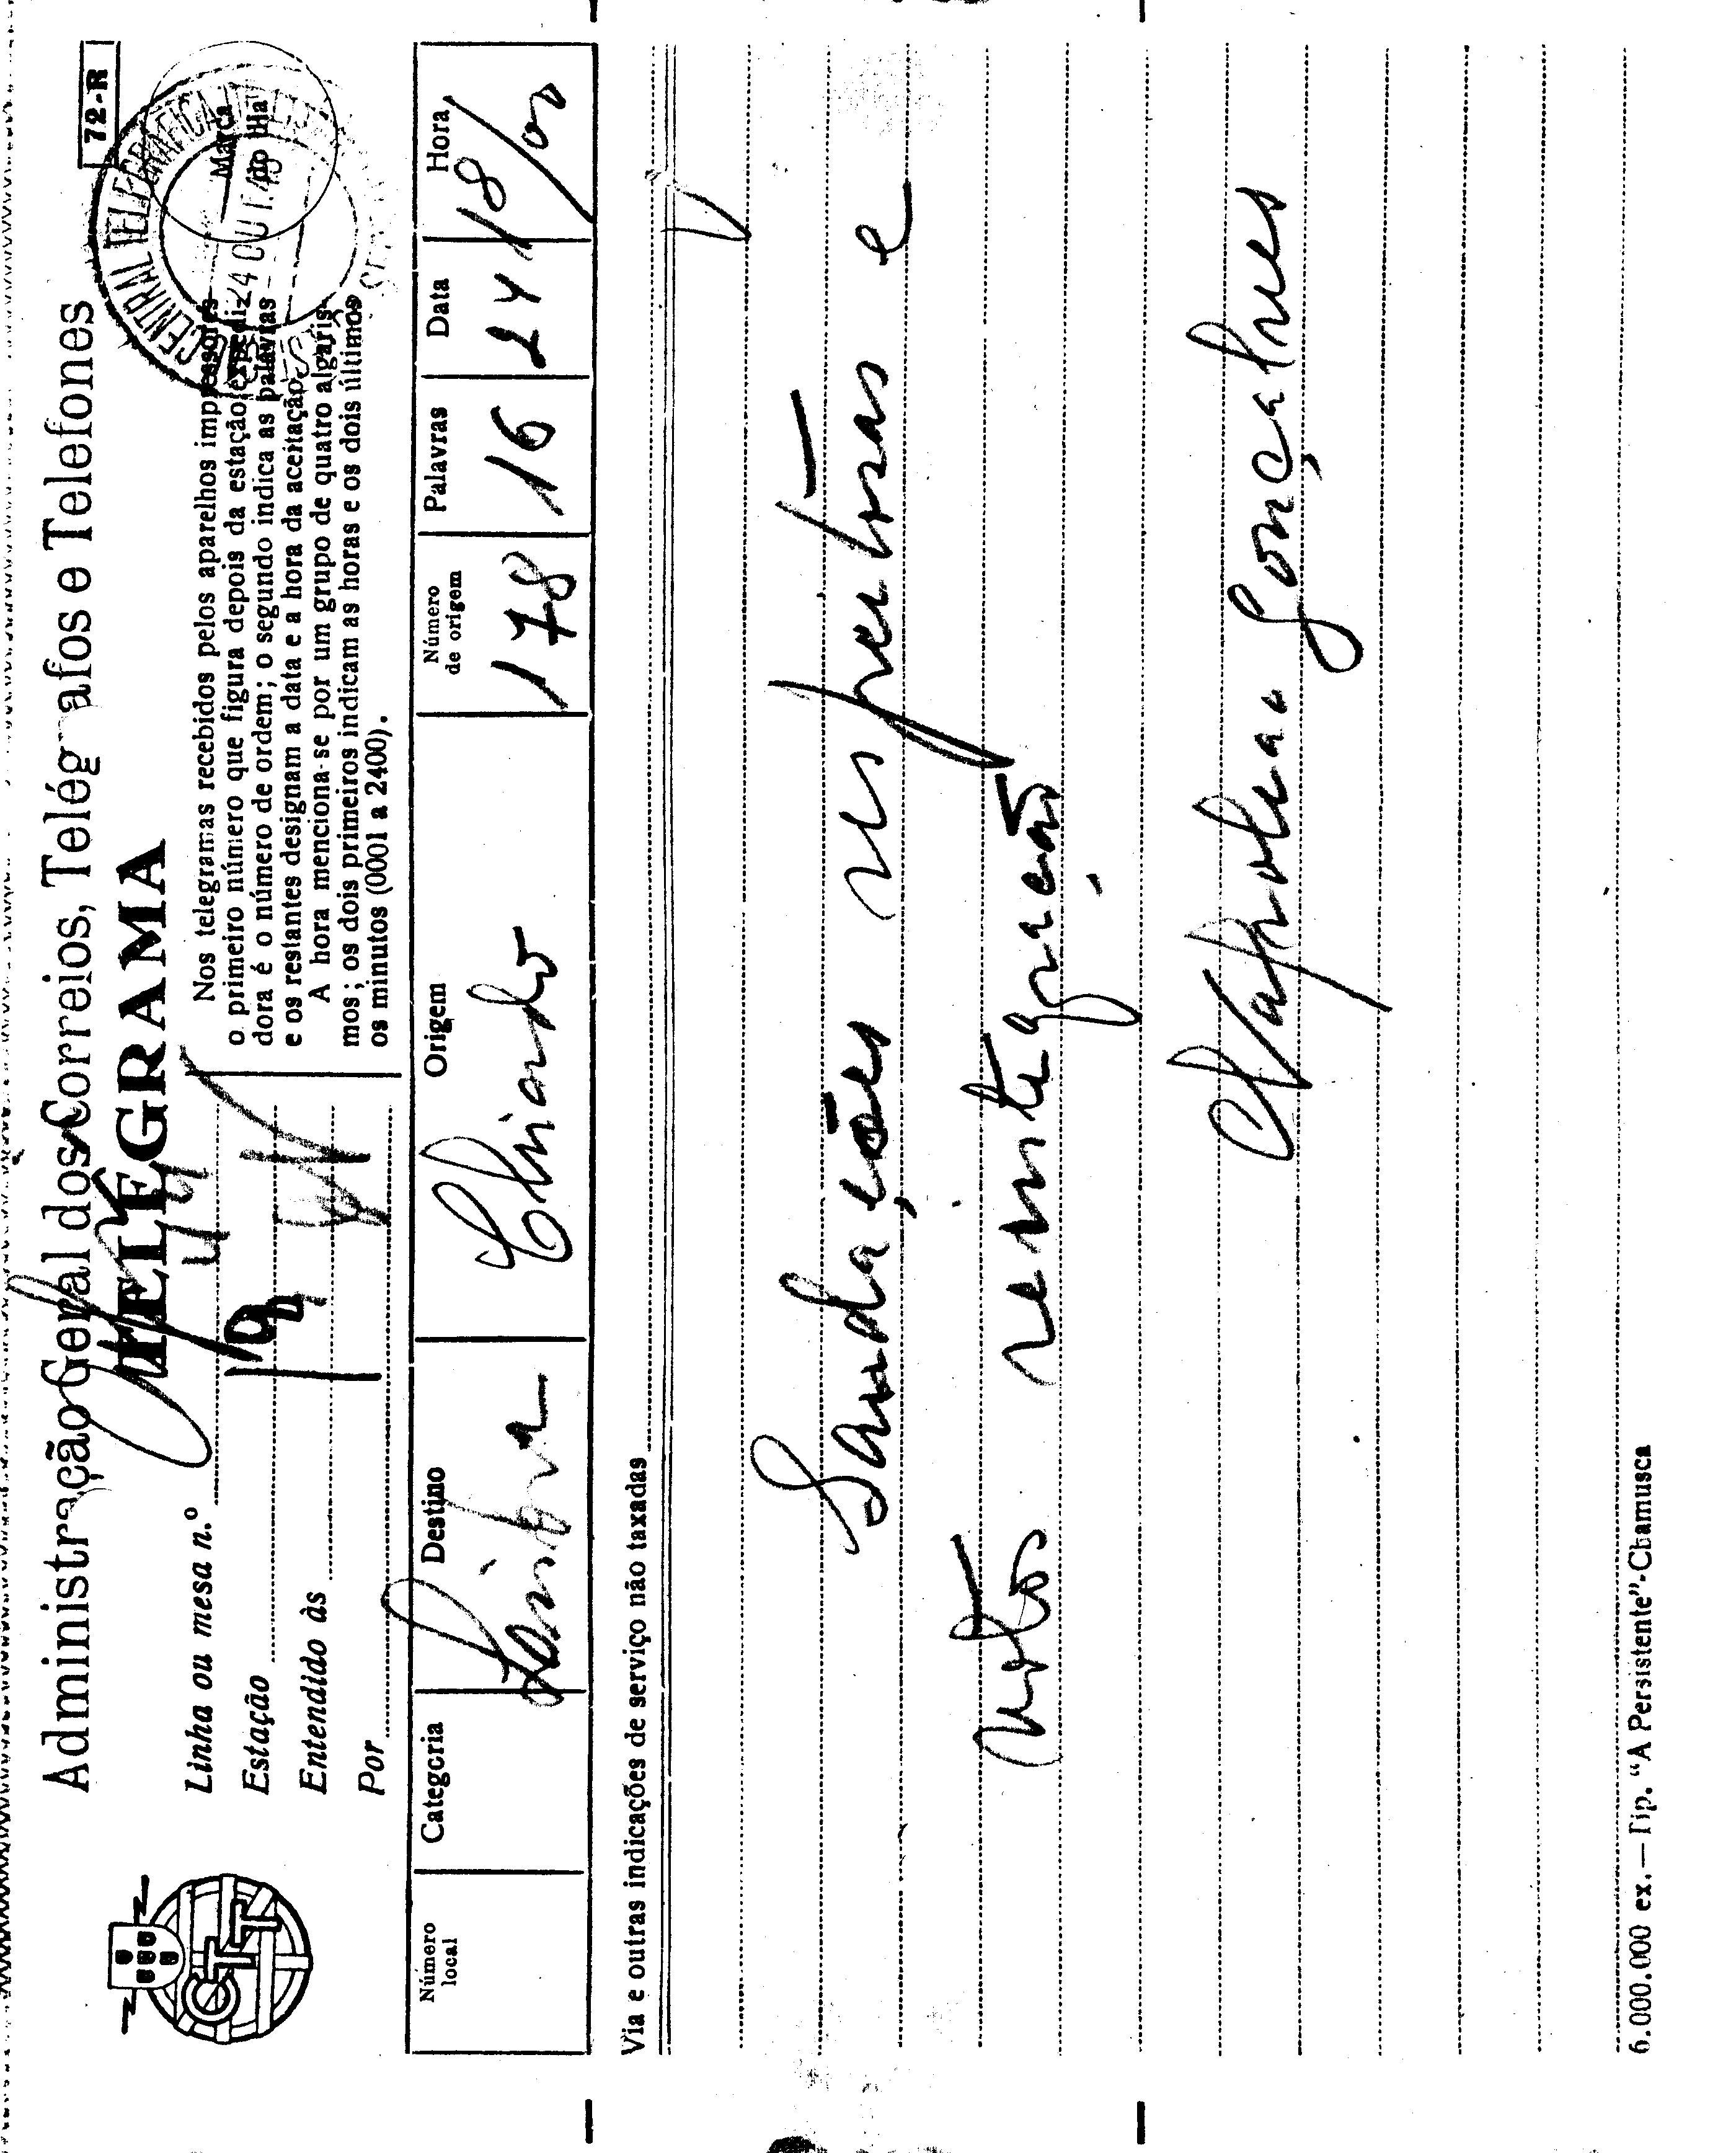 72-R
Administração Geral dos Correios, Telégrafos e Telefones
TELEGRAMA
CTT
Linha ou mesa n.º
Estação
Entendido às
Por
Nos telegramas recebidos pelos aparelhos impressores
o primeiro número que figura depois da estação expedi-
dora é o número de ordem; o segundo indica as palavras
e os restantes designam a data e a hora da aceitação.
A hora menciona-se por um grupo de quatro algaris-
mos; os dois primeiros indicam as horas e os dois últimos
os minutos (0001 a 2400).
Marca
do dia
CENTRAL TELEGRAFICA
24 OUT.
Número local
Categoria
Destino
Origem
Número de origem
Palavras
Data
Hora
Sintra
Chiado
178
16
24
18/00
Via e outras indicações de serviço não taxadas
Saudações respeitosas e
votos reintegração
Gonçalves
6.000.000 ex. — Tip. "A Persistente"-Chamusca